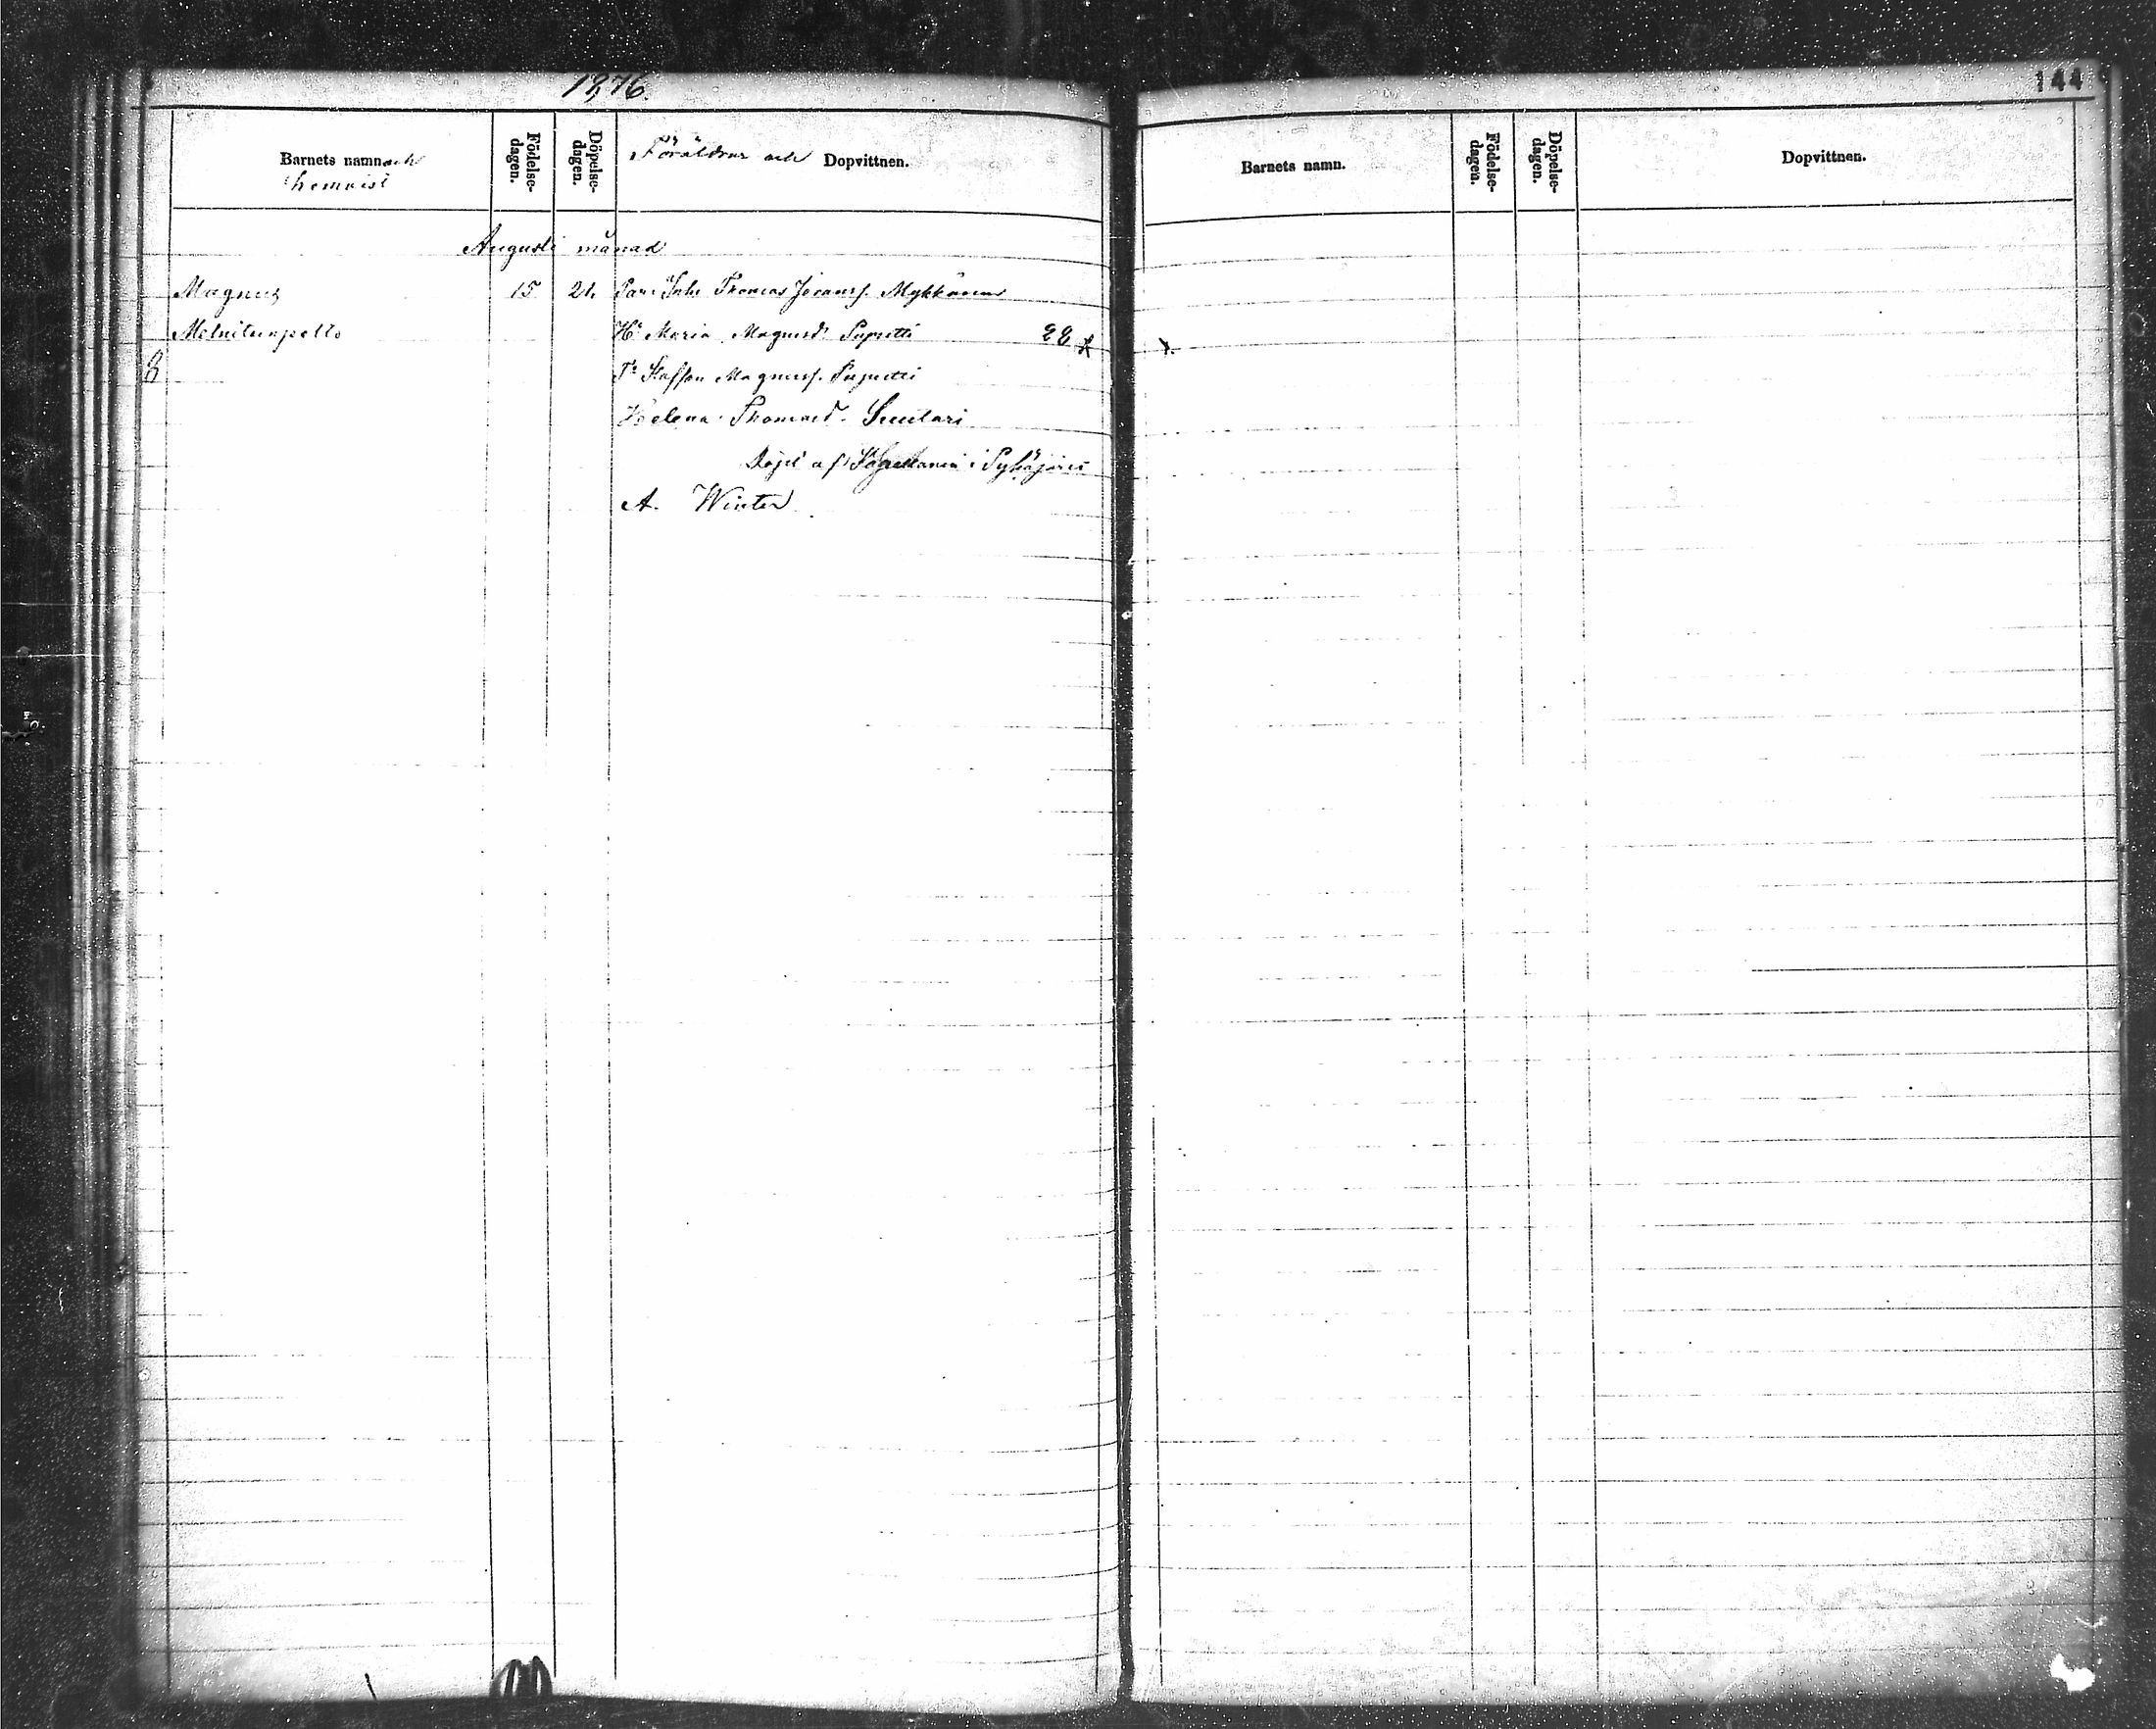 1876.
144
Barnets namn och
hemvist
Födelse-
dagen.
Döpelse-
dagen.
Föräldrar och Dopvittnen.
Barnets namn.
Födelse-
dagen.
Döpelse-
dagen.
Dopvittnen.
Augusti månad
Magnus 15 21. Thomas Göranss. Mykkänen
Hu Maria Magnusd. Puputti 28
Staffan Magnuss. Puputti
Helena Thomasd. Suutari
Döpt af i Pyhäjärvi
A. Winter